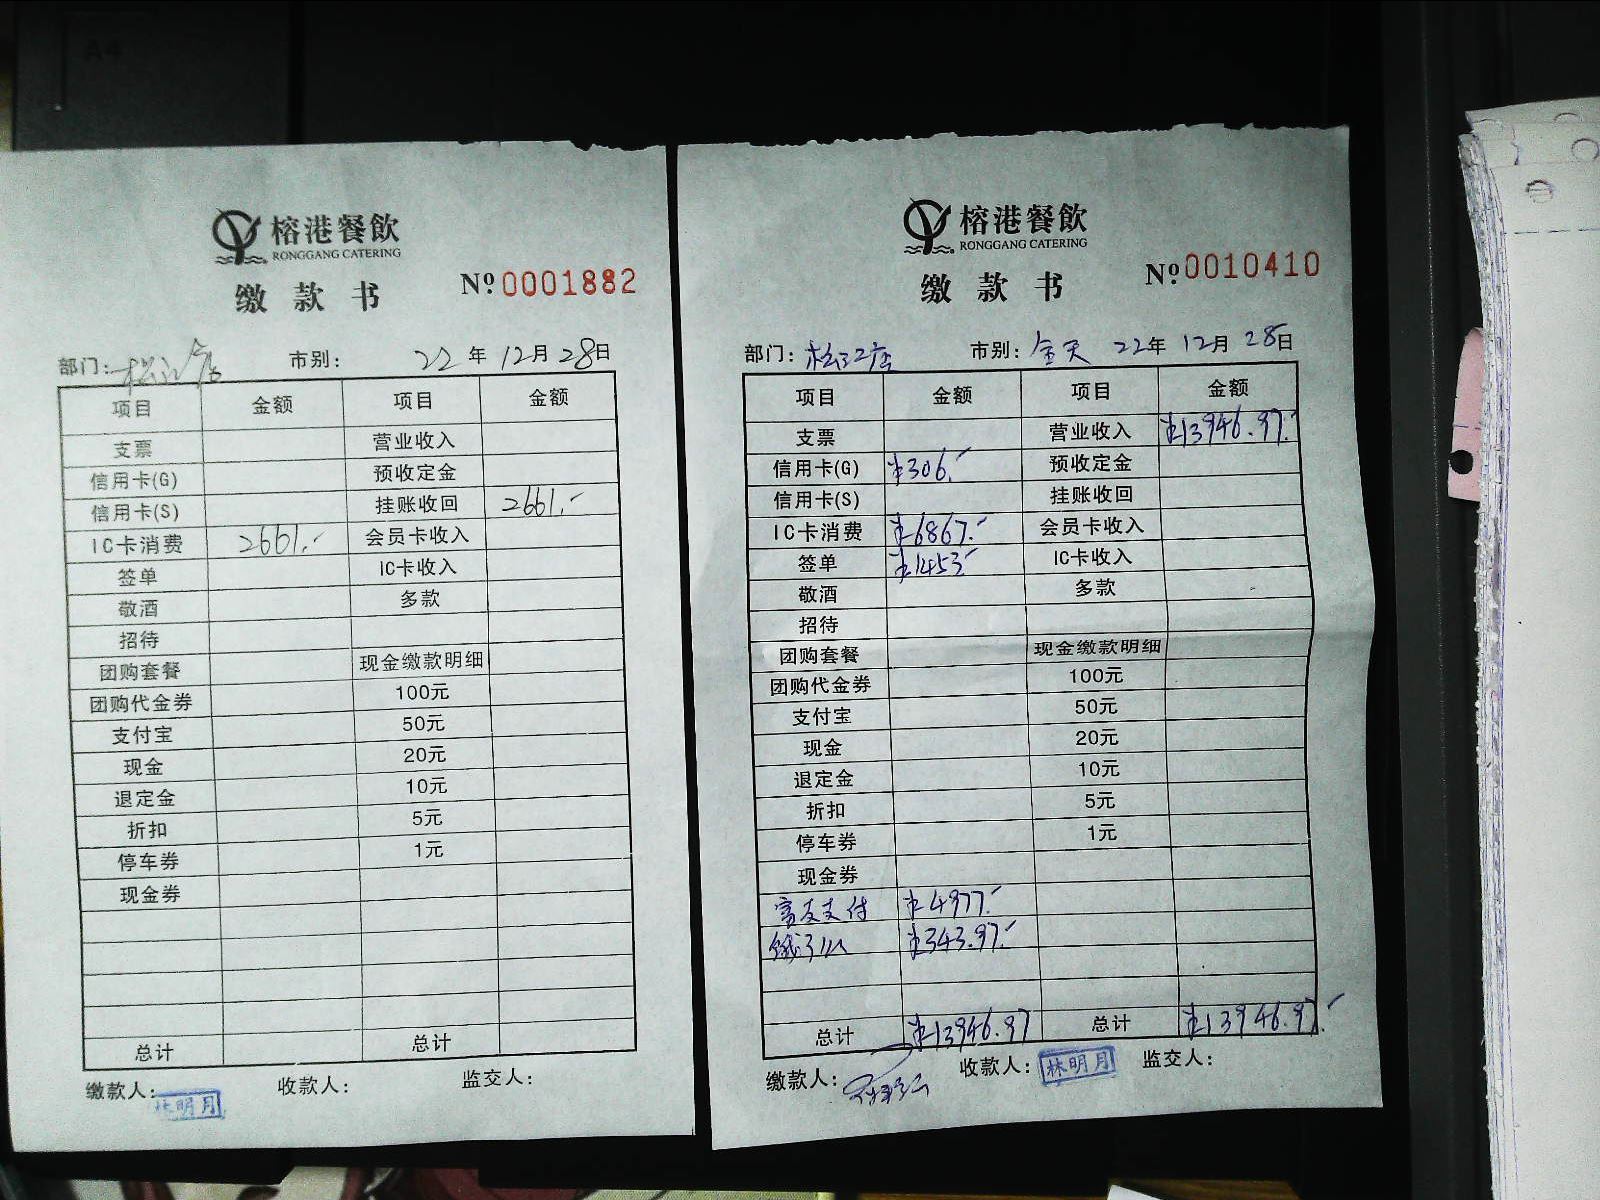 A4
榕港餐飲
RONGGANG CATERING
缴款书
№ 0001882
部门: 松江店 市别: 22年12月28日
项目 金额 项目 金额
支票 营业收入
信用卡(G) 预收定金
信用卡(S) 挂账收回 2661.-
IC卡消费 2661.- 会员卡收入
签单 IC卡收入
敬酒 多款
招待
团购套餐 现金缴款明细
团购代金券 100元
支付宝 50元
现金 20元
退定金 10元
折扣 5元
停车券 1元
现金券
总计 总计
缴款人: 林明月 收款人: 监交人:
榕港餐飲
RONGGANG CATERING
缴款书
№ 0010410
部门: 松江店 市别: 全天 22年12月28日
项目 金额 项目 金额
支票 营业收入 ¥13946.97.-
信用卡(G) ¥306.- 预收定金
信用卡(S) 挂账收回
IC卡消费 ¥6867.- 会员卡收入
签单 ¥1453.- IC卡收入
敬酒 多款
招待
团购套餐 现金缴款明细
团购代金券 100元
支付宝 50元
现金 20元
退定金 10元
折扣 5元
停车券 1元
现金券
富友支付 ¥4977.-
饿了么 ¥343.97.-
总计 ¥13946.97 总计 ¥13946.97.-
缴款人: 收款人: 林明月 监交人: